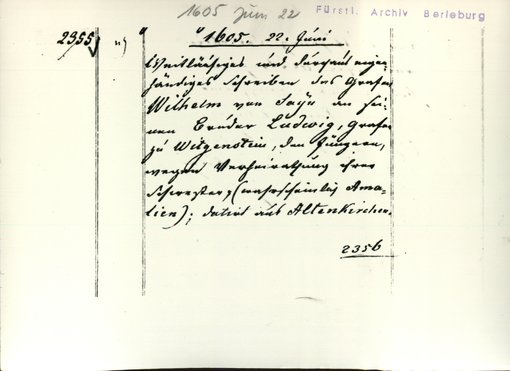 1605 Juni 22
Fürstl. Archiv Berleburg
2355 n)
1605. 22. Juni
Weitläufiges und durchaus eigen-
händiges Schreiben des Grafen
Wilhelm von Sayn an sei-
nen Bruder Ludwig, Grafen
zu Witgenstein, den Jüngern,
wegen Verheirathung ihrer
Schwester, (wahrscheinlich Ama-
lien); datirt aus Altenkirchen.
2356